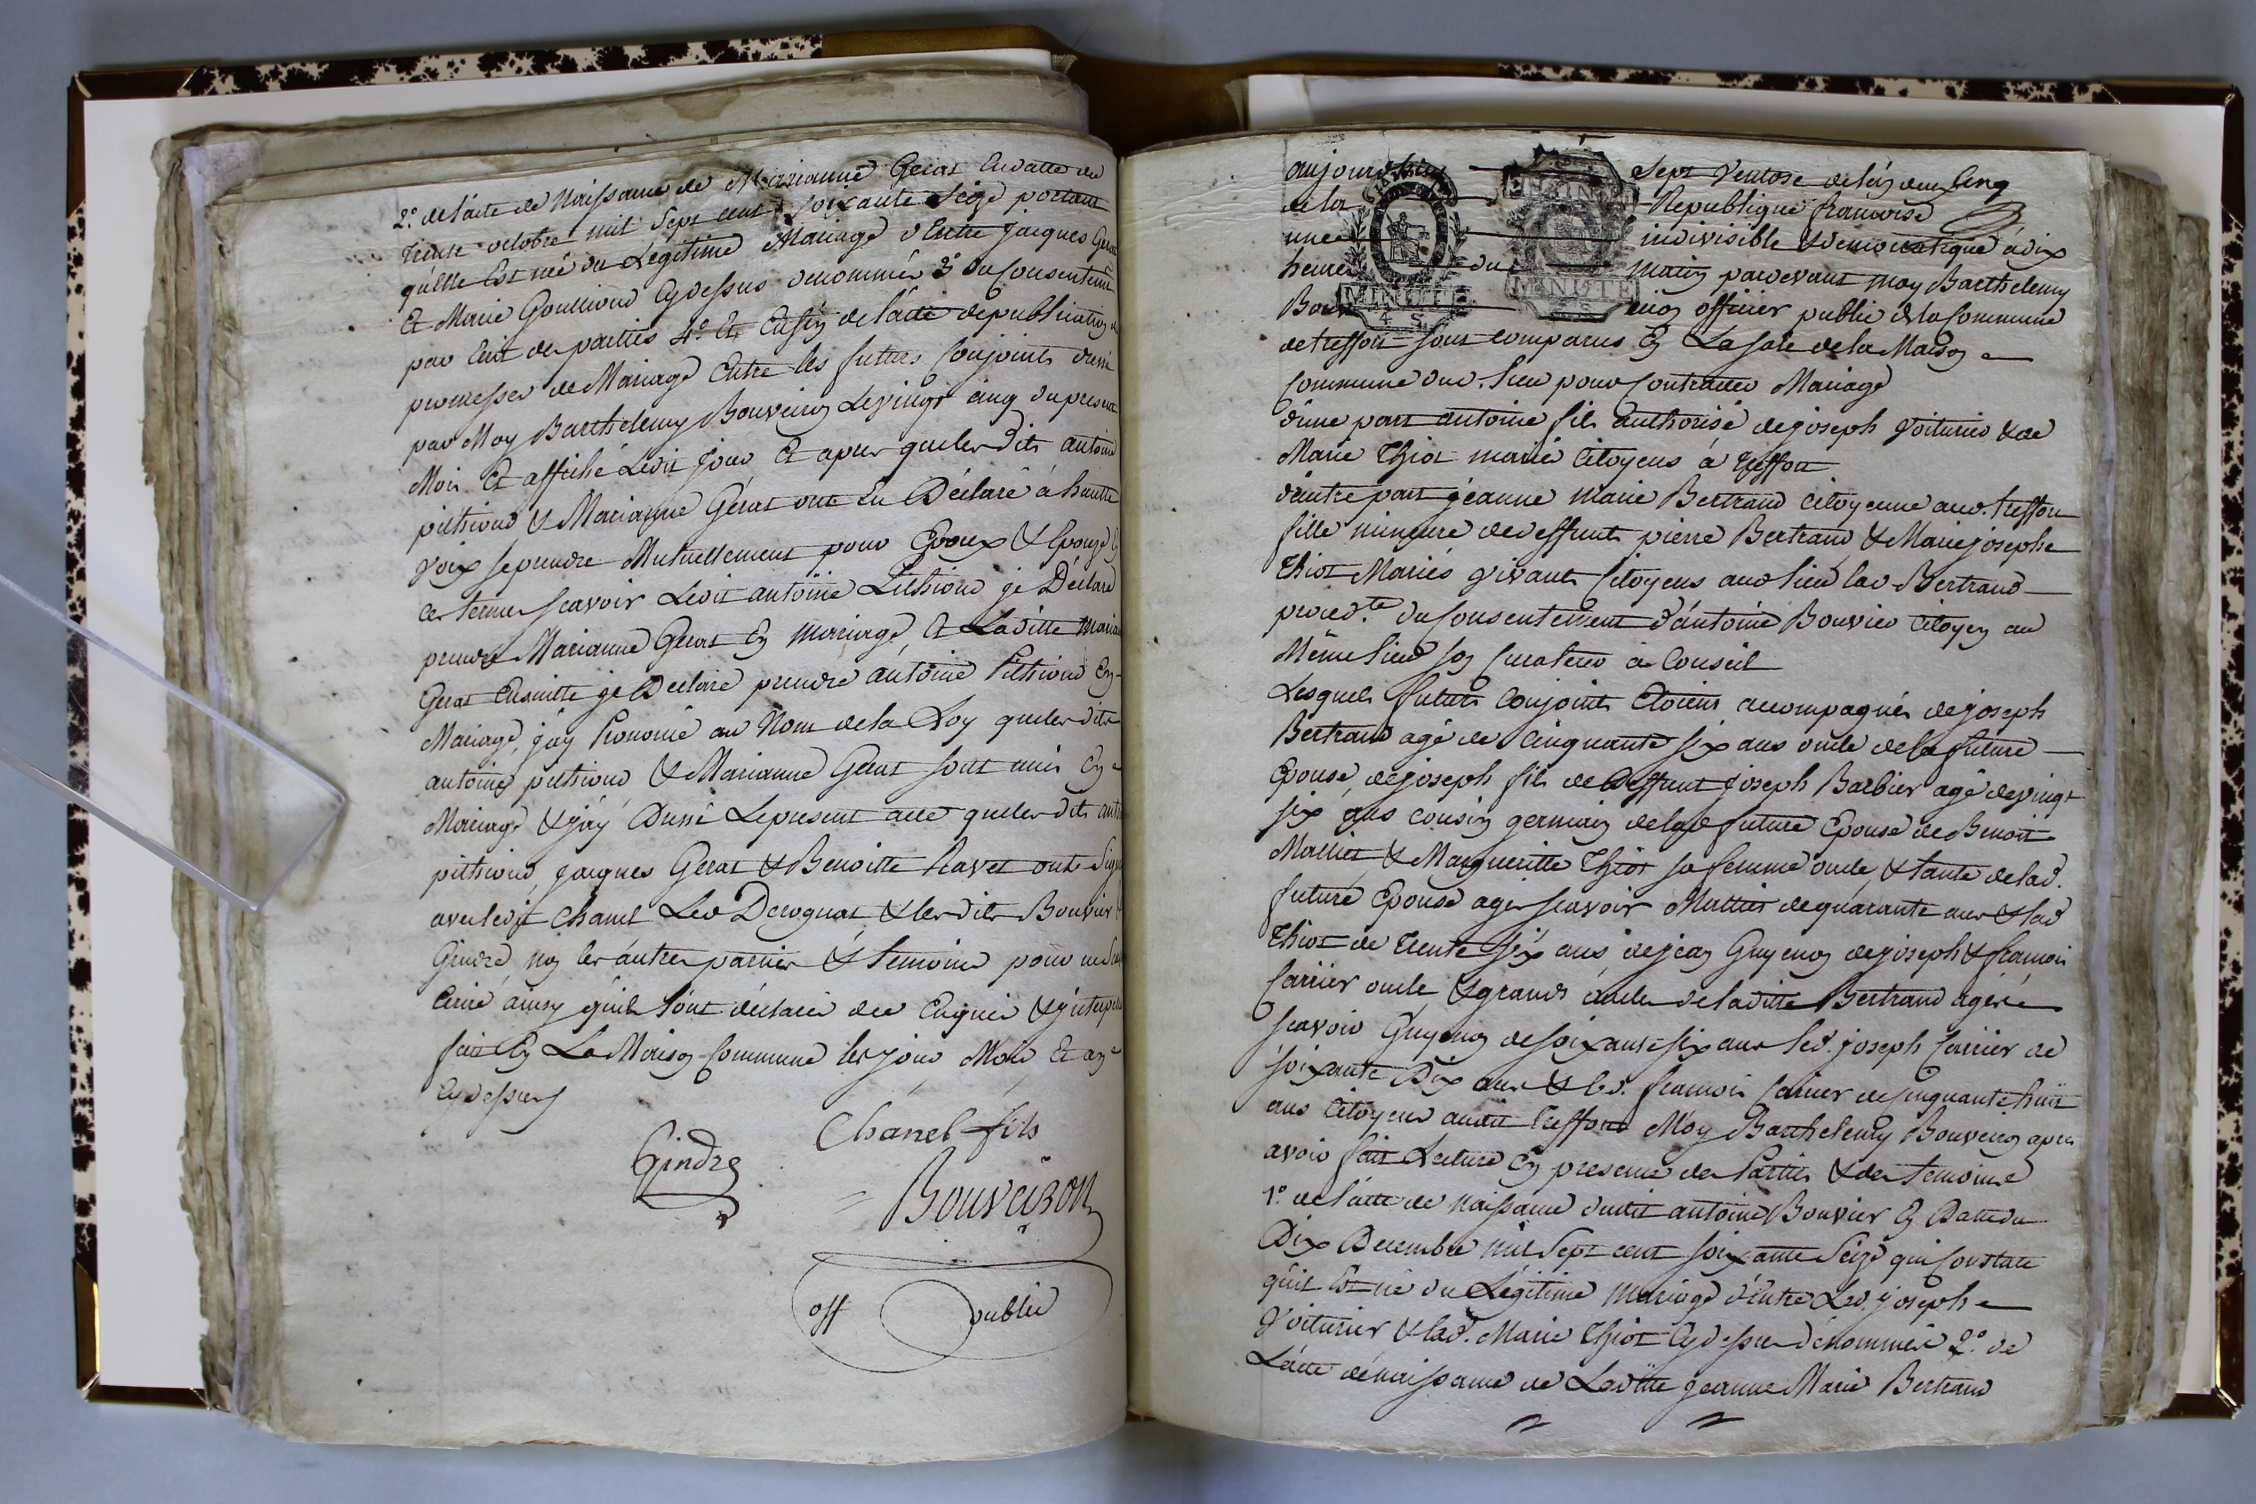 2.º de l'acte de Naissance de Marianne Gerat En datte du
trente octobre mil Sept cent Soixante Seize portant
qu'elle Est née du Légitime Mariage d'Entre Jacques Gerat
Et Marie Goullioud Cydessus denommés 3º du Consentement
par Ecrit des parties 4º Et Enfin de l'acte de publication de
promesses de Mariage Entre les futurs Conjoints dressé
par Moy Barthelemy Bouveiron Le vingt cinq du present
Mois Et affiché Ledit jour Et apres que les dits antoine
pithioud & Marianne Gerat ont Eu Déclaré à haute
voix se prendre Mutuellement pour Epoux & Epouze En
ces termes scavoir Ledit antoine Pithioud je Déclare
prendre Marianne Gerat En Mariage Et Laditte Marianne
Gerat Ensuitte je Declare prendre antoine Pithioud En
Mariage, j'ay Prononcé au Nom de la Loy que les dits
antoine pithioud & Marianne Gerat sont unis En
Mariage & j'ay Dressé Le present acte que les dits antoine
pithioud, jacques Gerat & Benoitte Ravet ont Signé
avec ledit Chanel Led Derognat & les dits Bouvier &
Gindre, non les autres parties & temoins pour ne Savoir
Ecrire ainsy qu'ils l'ont déclaré de ce Enquis &
fait En La Maison Commune les jour Mois Et an
Cydessus
Chanel fils
Gindre
Bouveiron
off public
aujourdhuy Sept Ventose de l'an deux Cinq
de la Republique francoise
une indivisible & democratique à dix
heures du Matin pardevant moy Barthelemy
Bouveiron officier public de la Commune
de treffort sont comparus En La sale de la Maison
Commune dud. lieu pour Contracter Mariage
d'une part antoine fils authorisé de joseph voiturier & de
Marie Thiot mariés Citoyens à treffort
d'autre part jeanne Marie Bertrand Citoyenne aud. treffort
fille mineure de deffunts pierre Bertrand & Marie josephe
Thiot Mariés vivants Citoyens aud lieu lad Bertrand
proced.te du Consentement d'antoine Bouvier Citoyen au
Même lieu son Curateur à Conseil
Lesquels futurs Conjoints Etoient accompagnés de joseph
Bertrand agé de Cinquante six ans oncle de la future
Epouse, de joseph fils de deffunt joseph Barbier agé de vingt
six ans cousin germain de lad future Epouse de Benoit
Mathieu & Marguerite Thiot sa femme oncle & tante de lad.
future Epouse agés scavoir Mathieu de quarante ans & lad
Thiot de trente six ans de jean Guyenon de joseph & francois
Carrier oncle & grands oncles de laditte Bertrand agés
scavoir Guyenon de soixante six ans led. joseph Carrier de
soixante Dix ans & led. francois Carrier de cinquante huit
ans Citoyens audit treffort Moy Barthelemy Bouveiron apres
avoir fait Lecture En presence des Parties & des temoins
1º de l'acte de Naissance dudit antoine Bouvier En Datte du
Dix Decembre Mil Sept cent soixante Seize qui Constate
qu'il Est né du Légitime Mariage d'Entre Led. joseph
Voiturier & lad. Marie Thiot Cydessus dénommés 2.º de
L'acte de naissance de Laditte jeanne Marie Bertrand